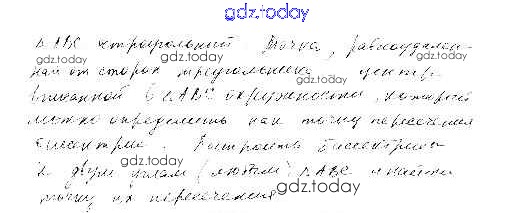 gdz.today
△ ABC остроугольный. Точка, равноудален-
gdz.today gdz.today
ная от сторон треугольника центр
вписанной в △ABC окружности, который
gdz.today
можно определить как точку пересечения
биссектрис. Построить биссектрисы
gdz.today
к двум углам (любым) △ABC и найти
точку их пересечения
gdz.today